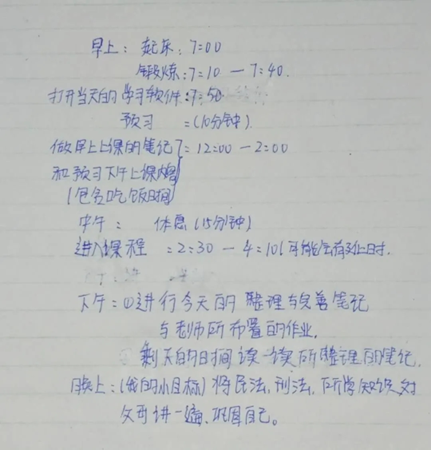 早上：起床：7:00
锻炼：7:10 — 7:40.
打开当天的学习软件：7:50
预习 :(10分钟)
做早上上课的笔记 : 12:00 — 2:00
和预习下午上课内容
(包含吃饭时间)
中午： 休息(15分钟)
进入课程 : 2:30 — 4:10(
下午：①进行今天的整理与完善笔记
与老师所布置的作业.
剩下的时间读一读所整理的笔记.
晚上：(我的小目标)将民法、刑法、所学知识对
父母讲一遍、巩固自己。